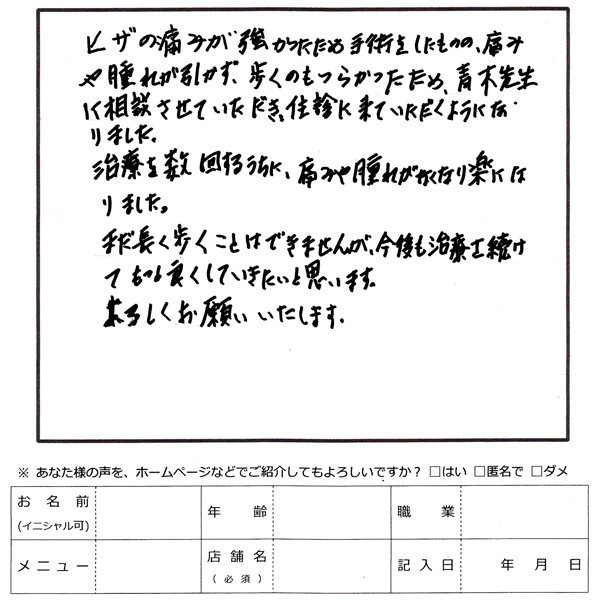 ヒザの痛みが強かったため手術をしたものの、痛み
や腫れが引かず、歩くのもつらかったため、青木先生
に相談させていただき、往診に来ていただくようにな
りました。
治療を数回するうちに、痛みや腫れがかなり楽にな
りました。
まだ長く歩くことはできませんが、今後も治療を続け
てもっと良くしていきたいと思います。
よろしくお願いいたします。
※ あなた様の声を、ホームページなどでご紹介してもよろしいですか? □はい □匿名で □ダメ
お名前 年齢 職業
(イニシャル可)
メニュー 店舗名 記入日 年 月 日
(必須)